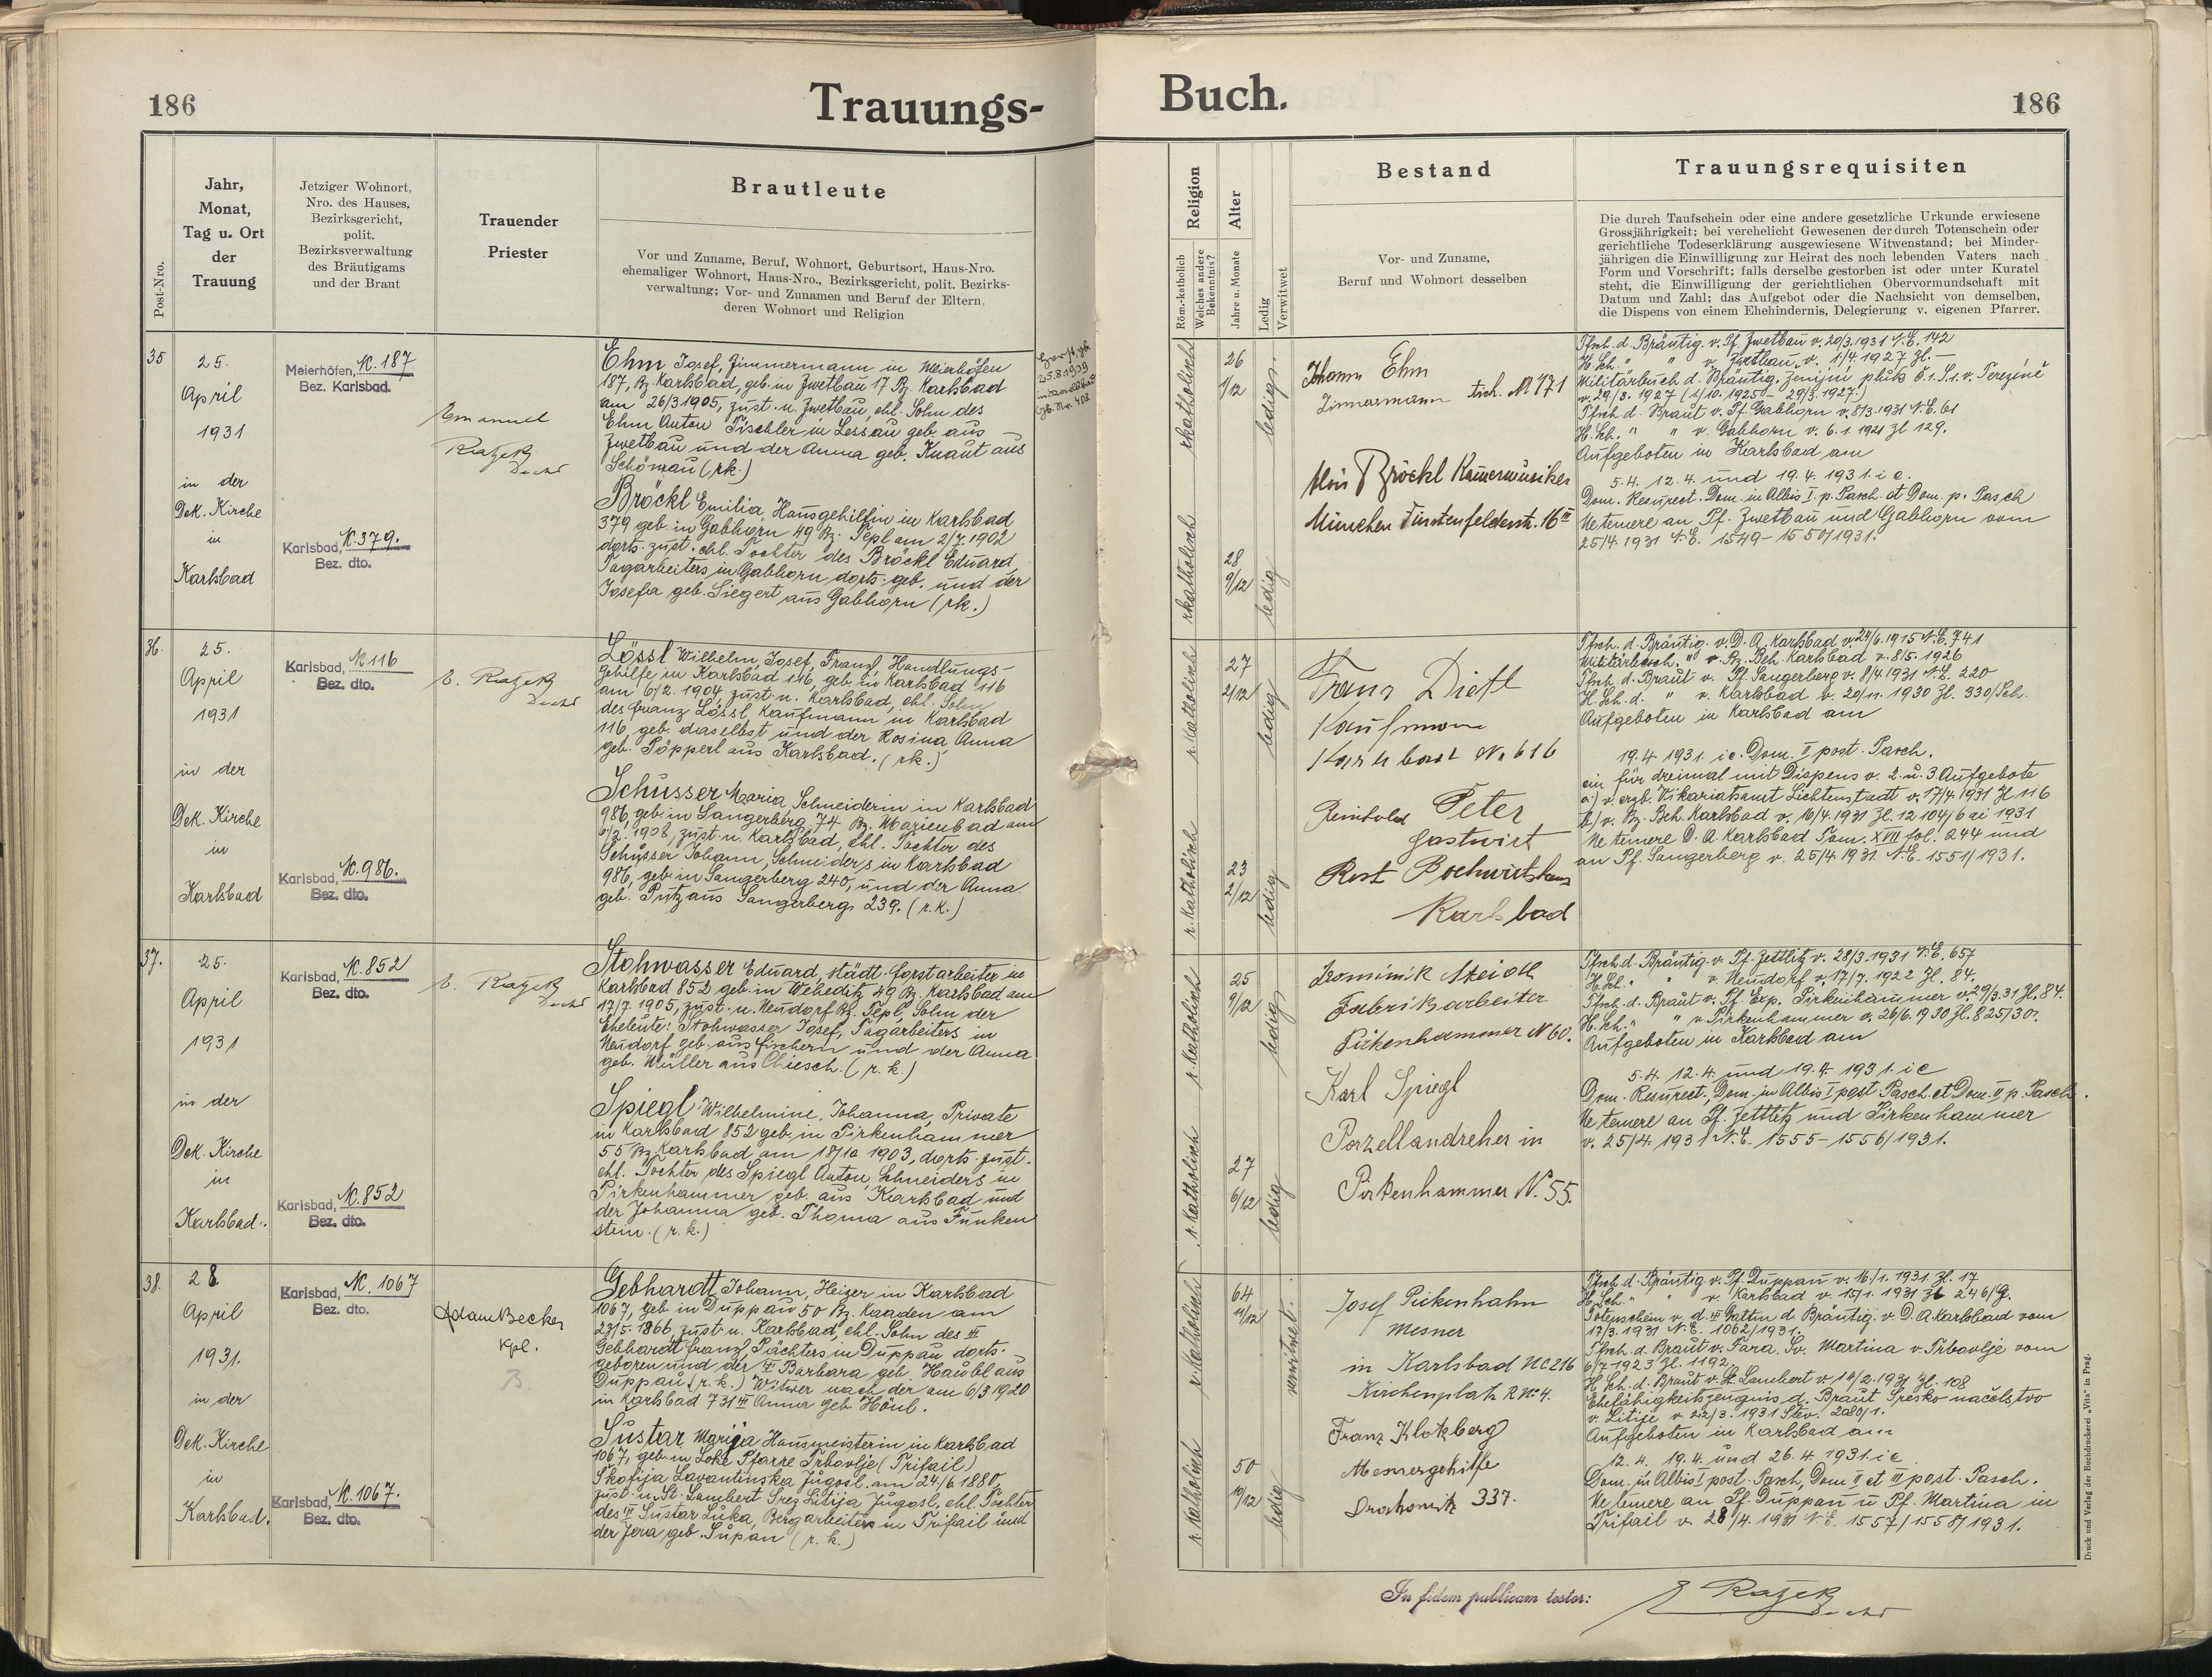 186
Trauungs-
Post-Nro.
Jahr,
Monat,
Tag u. Ort
der
Trauung
Jetziger Wohnort,
Nro. des Hauses,
Bezirksgericht,
polit.
Bezirksverwaltung
des Bräutigams
und der Braut
Trauender
Priester
Brautleute
Vor und Zuname, Beruf, Wohnort, Geburtsort, Haus-Nro.
ehemaliger Wohnort, Haus-Nro., Bezirksgericht, polit. Bezirks-
verwaltung; Vor- und Zunamen und Beruf der Eltern,
deren Wohnort und Religion
35
25.
April
1931
in der
Dek. Kirche
in
Karlsbad
Meierhöfen, N. 187
Bez. Karlsbad.
Karlsbad, N. 379.
Bez. dto.
Emanuel
Ražek
Ehm Josef, Zimmermann in Meierhöfen
187, Bz. Karlsbad, geb. in Zwetbau 17 Bz. Karlsbad
am 26/3 1905, zust. n. Zwetbau, ehl. Sohn des
Ehm Anton Tischler in Lessau geb. aus
Zwetbau und der Anna geb. Knaut aus
Schönau (rk.)
Bröckl Emilia, Hausgehilfin in Karlsbad
379 geb. in Gabhorn 49 Bz. Tepl am 2/7. 1902
dorts. zust. ehl. Tochter des Bröckl Eduard,
Tagarbeiters in Gabhorn dorts. geb. und der
Josefa geb. Siegert aus Gabhorn (rk.)
25.8.1939
36.
25.
April
1931
in der
Dek. Kirche
in
Karlsbad
Karlsbad, N 116
Bez. dto.
Karlsbad, N. 986.
Bez. dto.
E. Ražek
Lössl Wilhelm, Josef, Franz, Handlungs-
gehilfe in Karlsbad 116, geb. in Karlsbad 116
am 6/2. 1904 zust. n. Karlsbad, ehl. Sohn
des Franz Lössl, Kaufmann in Karlsbad
116, geb. daselbst und der Rosina Anna
geb. Pöpperl aus Karlsbad. (rk.)
Schusser Maria, Schneiderin in Karlsbad
986, geb. in Sangerberg 74 Bz. Marienbad am
6/2. 1908, zust. n. Karlsbad, ehl. Tochter des
Schusser Johann, Schneiders in Karlsbad
986, geb. in Sangerberg 240, und der Anna
geb. Putz aus Sangerberg 239. (r.k.)
37.
25.
April
1931
in der
Dek. Kirche
in
Karlsbad.
Karlsbad, N. 852
Bez. dto.
Karlsbad, N. 852
Bez. dto.
E. Ražek
Stohwasser Eduard, städt. Forstarbeiter in
Karlsbad 852 geb. in Weheditz 49 Bz. Karlsbad am
17/7 1905, zust. n. Neudorf Bz. Tepl, Sohn der
Eheleute: Stohwasser Josef, Tagarbeiters in
Neudorf geb. aus Fischern und der Anna
geb. Müller aus Chiesch. (r. k.)
Spiegl Wilhelmine, Johanna, Private
in Karlsbad 852 geb. in Pirkenhammer
55 Bz. Karlsbad am 18/10 1903, dorts. zust.
ehl. Tochter des Spiegl Anton, Schneiders in
Pirkenhammer geb. aus Karlsbad und
der Johanna geb. Thoma aus Funken
stein. (r. k.)
38.
28.
April
1931.
in der
Dek. Kirche
in
Karlsbad.
Karlsbad, N. 1067
Bez. dto.
Karlsbad, N. 1067.
Bez. dto.
Adam Becker
Kpl.
Gebhardt Johann, Heizer in Karlsbad
1067, geb. in Duppau 50 Bz. Kaaden am
23/5. 1866, zust. n. Karlsbad, ehl. Sohn des III
Gebhardt Franz, Pächters in Duppau dorts.
geboren und der III Barbara geb. Häubl aus
Duppau (r. k.) Witwer nach der am 6/3 1920
in Karlsbad 731 III Anna geb. Hönl.
Šustar Marija Hausmeisterin in Karlsbad
1067, geb. in Loke Pfarre Trbovlje (Trifail)
Škofija Lavantinska Jugosl. am 24./6. 1880,
zust. n. St. Lambert Srez Litija Jugosl., ehl. Tochter
des III Šustar Luka, Bergarbeiters in Trifail und
der Jera geb. Supan (r. k.)
Buch.
186
Religion
Röm.-katholisch
Welches andere
Bekenntnis?
Alter
Jahre u. Monate
Ledig
Verwitwet
Bestand
Vor- und Zuname,
Beruf und Wohnort desselben
Trauungsrequisiten
Die durch Taufschein oder eine andere gesetzliche Urkunde erwiesene
Grossjährigkeit; bei verehelicht Gewesenen der durch Totenschein oder
gerichtliche Todeserklärung ausgewiesene Witwenstand; bei Minder-
jährigen die Einwilligung zur Heirat des noch lebenden Vaters nach
Form und Vorschrift; falls derselbe gestorben ist oder unter Kuratel
steht, die Einwilligung der gerichtlichen Obervormundschaft mit
Datum und Zahl; das Aufgebot oder die Nachsicht von demselben,
die Dispens von einem Ehehindernis, Delegierung v. eigenen Pfarrer.
rkatholisch
26
1/12
ledig.
rkatholisch
28
9/12
ledig
Johann Ehm
Zimmermann Fisch. N 771
Alois Bröckl Kammermusiker
München Fürstenfelderstr. 16 II
Tfsch. d. Bräutig. v. Pf. Zwetbau v. 20/3. 1931 N.E. 142
H. Sch. " " v. Zwetbau v. 1/4. 1927 Zl. —
Militärbuch d. Bräutig. Ženijní pluk č. 1. S. 1. v. Terezíně
v. 29/3. 1927 (1/10. 1925 – 29/3. 1927.)
Tfsch d. Braut v. Pf. Gabhorn v. 8/3. 1931 N.E. 61
H. Sch. " " v. Gabhorn v. 6. 1. 1921 Zl 129.
Aufgeboten in Karlsbad am
5.4. 12.4. und 19.4. 1931. i e.
Dom. Resurect. Dom. in Albis I. p. Pasch. et Dom. p. Pasch
Ne temere an Pf. Zwetbau und Gabhorn vom
25/4. 1931 N.E. 1549 – 1550/1931.
r. katholisch
27
2/12
ledig
r. katholisch
23
2/12
ledig
Franz Dietl
Kaufmann
Karlsbad No 616
Reinhold Peter
Gastwirt
Rest Pochwirtshaus
Karlsbad
Tfsch. d. Bräutig. v. D. A. Karlsbad v. 24/6. 1915 N.E. 741
Militärbesch. " v. Bz. Beh. Karlsbad v. 8/5. 1926
Tfsch. d. Braut v. Pf. Sangerberg v. 8/4 1931 N.E. 220
H. Sch. d. " v. Karlsbad v. 20/11. 1930 Zl. 330/Sch.
Aufgeboten in Karlsbad am
19.4. 1931. i e. Dom. II post. Pasch.
ein für dreimal mit Dispens v. 2. u. 3. Aufgebote
a) v. erzb. Vikariatsamt Lichtenstadt v. 17/4. 1931 Zl 116
b) v. Bz. Beh. Karlsbad v. 16/4. 1931 Zl. 12.104/6 ai 1931
Ne temere D. A. Karlsbad Tom. XVII fol. 244 und
an Pf. Sangerberg v. 25/4 1931. N.E. 1551/1931.
r. katholisch
25
9/12
ledig
r. katholisch
27
6/12
ledig
Dominik Steidl
Fabriksarbeiter
Pirkenhammer N 60.
Karl Spiegl
Porzellandreher in
Pirkenhammer N. 55.
Tfsch d. Bräutig. v. Pf. Zettlitz v. 28/3. 1931 N.E. 657
H. Sch. " " v. Neudorf v. 17/7. 1922 Zl. 84.
Tfsch. d. Braut v. Pf. Exp. Pirkenhammer v. 29/3. 31 Zl. 84.
H. Sch. " " v. Pirkenhammer v. 26/6. 1930 Zl. 825/30.
Aufgeboten in Karlsbad am
5.4. 12.4. und 19.4. 1931. i e
Dom. Resurect., Dom. in Albis I post. Pasch. et Dom. II p. Pasch.
Ne temere an Pf. Zettlitz und Pirkenhammer
v. 25/4. 1931 N.E. 1555 – 1556/1931.
r. katholisch
64
11/12
verwitwet.
r. katholisch
50
10/12
ledig
Josef Pickenhahn
Mesner
in Karlsbad NC 216
Kirchenplatz R No 4.
Franz Klotzberg
Mesnergehilfe
Drahowitz 337.
Tfsch. d. Bräutig. v. Pf. Duppau v. 16./1. 1931. Zl. 17
H. Sch. " " v. Karlsbad v. 15/1. 1931 Zl. 246/G.
Totenschein v. d. III Gattin d. Bräutig. v. D. A. Karlsbad vom
17/3. 1931 N.E. 1062/1931.
Tfsch. d. Braut v. Fara Sv. Martina v. Trbovlje vom
6/7 1923 Zl. 1192.
H. Sch. d. Braut v. St. Lambert v. 14/2. 1931 Zl. 108
Ehefähigkeitszeugnis d. Braut Sresko načelstvo
v. Litije v. 22/3. 1931 Štev. 2080/1.
Aufgeboten in Karlsbad am
12.4. 19.4. und 26.4. 1931. i e
Dom. in Albis I post. Pasch, Dom II et III post. Pasch.
Ne temere an Pf. Duppau u Pf. Martina in
Trifail v. 28/4. 1931 N.E. 1557/1558/1931.
In fidem publicam testor:
E Ražek
Druck und Verlag der Buchdruckerei „Vita“ in Prag.